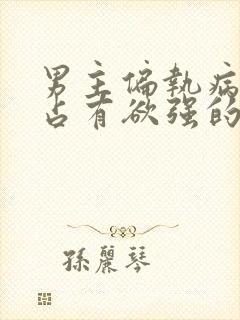 男主偏執病
占有欲强的
孫麗琴